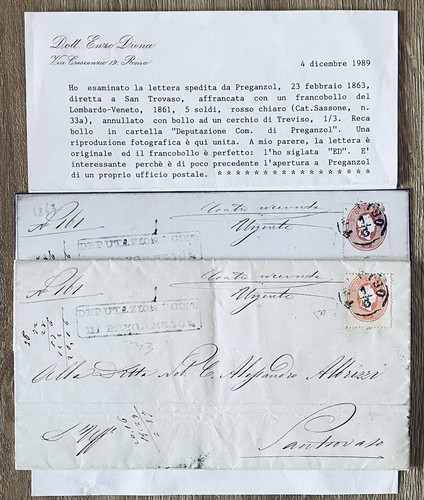 Dott. Enzo Diena
Via Crescenzio 19. Roma
4 dicembre 1989
Ho esaminato la lettera spedita da Preganzol, 23 febbraio 1863,
diretta a San Trovaso, affrancata con un francobollo del
Lombardo-Veneto, 1861, 5 soldi, rosso chiaro (Cat.Sassone, n.
33a), annullato con bollo ad un cerchio di Treviso, 1/3. Reca
bollo in cartella "Deputazione Com. di Preganzol". Una
riproduzione fotografica è qui unita. A mio parere, la lettera è
originale ed il francobollo è perfetto: l'ho siglata "ED". E'
interessante perchè è di poco precedente l'apertura a Preganzol
di un proprio ufficio postale. * * * * * * * * * * * * * * * * *
Urgente
DEPUTAZION COM
Urgente
DEPUTAZION COM
DI PREGANZIOL
Alla Ditta Nob. C. Alessandro Albrizzi
Santrovaso